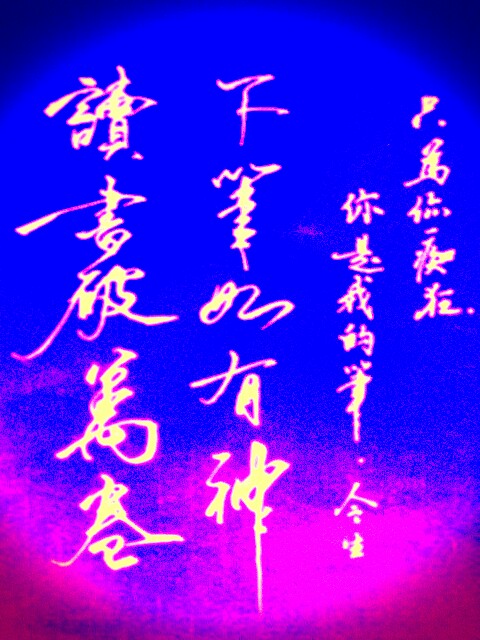 讀書破萬卷
下筆如有神
你是我的筆．今生
只為你痴狂．